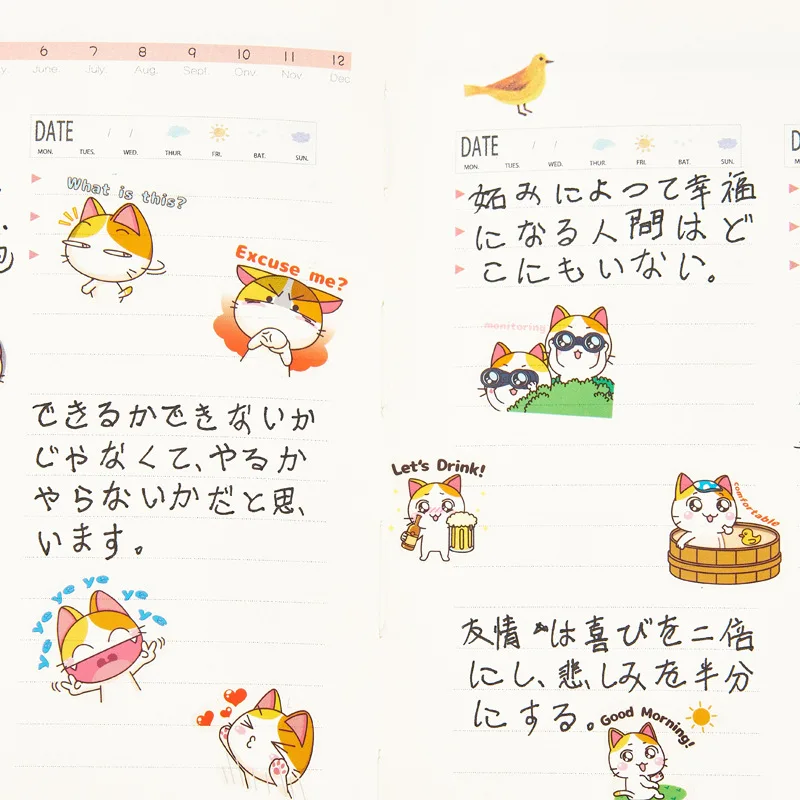 6 7 8 9 10 11 12
June. July. Aug. Sept. Onv. Nov. Dec
DATE / /
MON. TUES. WED. THUR. FRI. BAT. SUN.
What is this?
Excuse me?
できるかできないか
じゃなくて、やるか
やらないかだと思、
います。
ye ye ye ye ye ye
DATE / /
MON. TUES. WED. THUR. FRI. BAT. SUN.
妬みによって幸福
になる人間はど
こにもいない。
monitoring
Let's Drink!
comfortable
友情は喜びを二倍
にし、悲しみを半分
にする。
Good Morning!